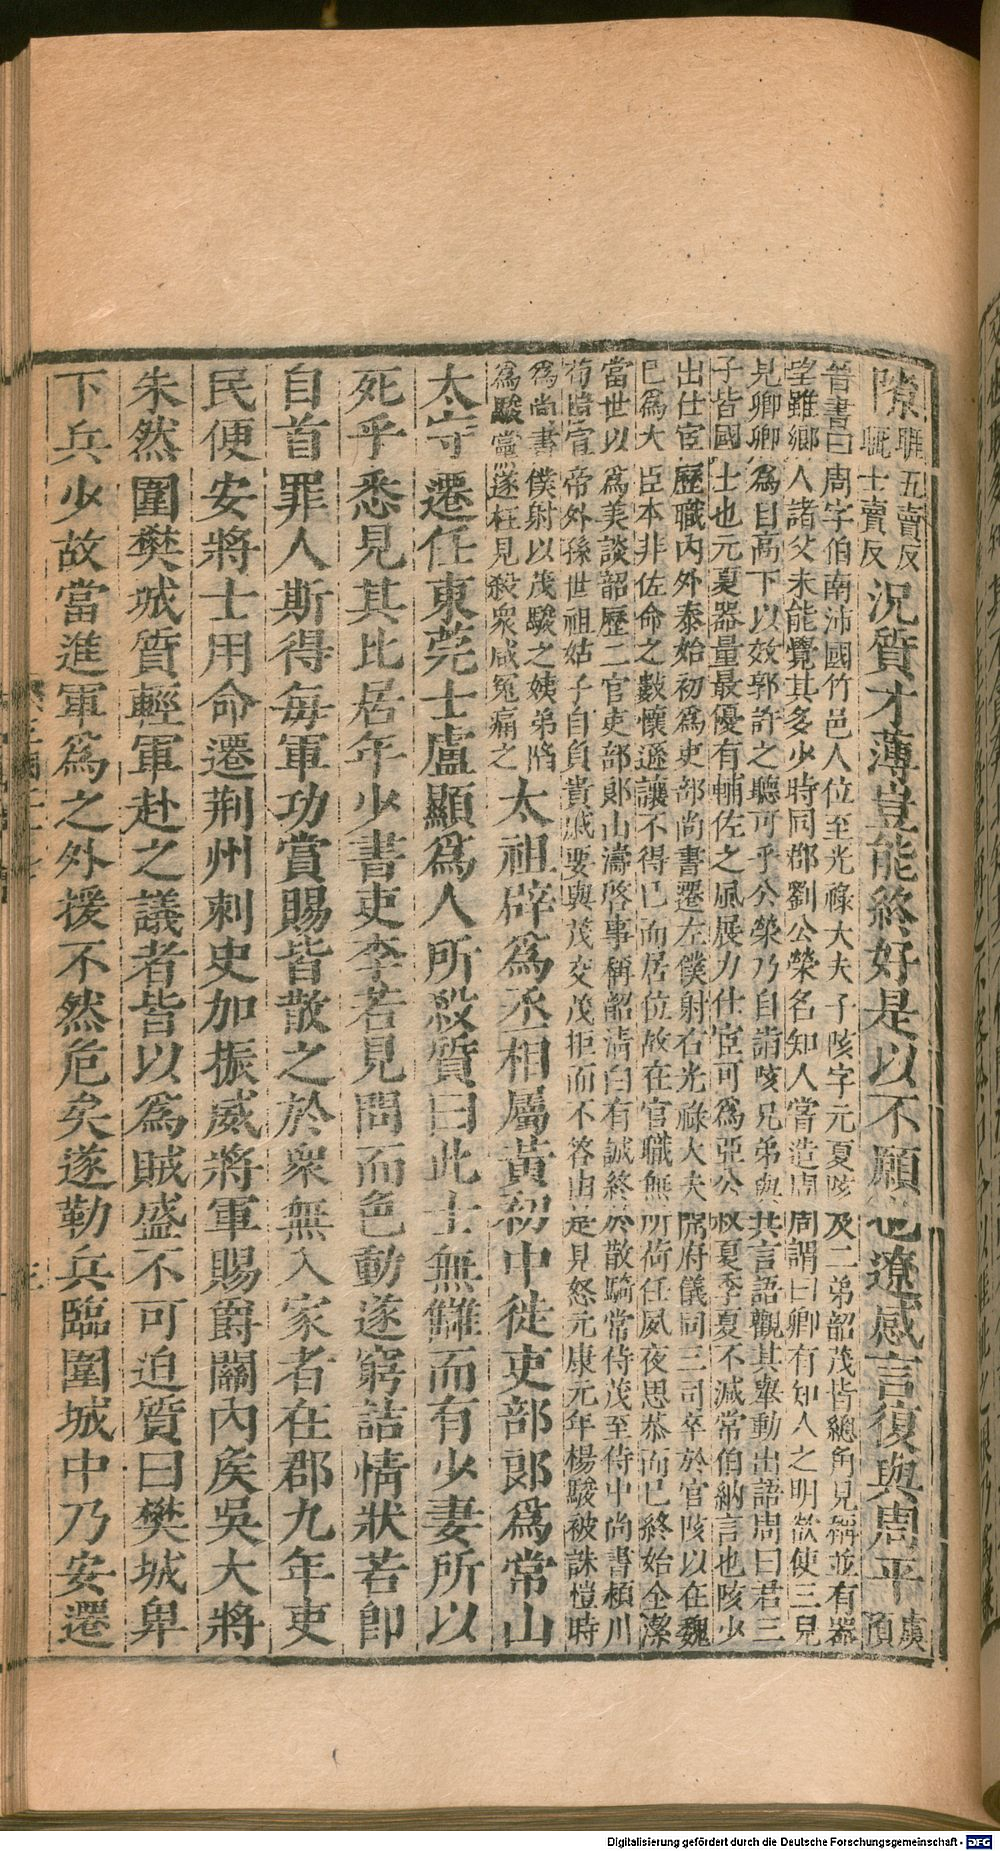 隙睚五賣反眦士賣反況質才薄豈能終好是以不願也遼感言復與周平虞預
晉書曰周字伯南沛國竹邑人位至光祿大夫子陔字元夏陔及二弟韶茂皆總角見稱並有器
望雖鄉人諸父未能覺其多少時同郡劉公榮名知人嘗造周周謂曰卿有知人之明欲使三兒
見卿卿爲目高下以效郭許之聽可乎公榮乃自詣陔兄弟與共言語觀其舉動出語周曰君三
子皆國士也元夏器量最優有輔佐之風展力仕宦可爲亞公叔夏季夏不減常伯納言也陔少
出仕宦歷職內外泰始初爲吏部尚書遷左僕射右光祿大夫開府儀同三司卒於官陔以在魏
已爲大臣本非佐命之數懷遜讓不得已而居位故在官職無所荷任夙夜思恭而已終始全潔
當世以爲美談韶歷二官吏部郎山濤啓事稱韶清白有誠終於散騎常侍茂至侍中尚書潁川
荀愷宣帝外孫世祖姑子自負貴戚要與茂交茂拒而不答由是見怒元康元年楊駿被誅愷時
爲尚書僕射以茂駿之姨弟陷
爲駿黨遂枉見殺衆咸冤痛之
太祖辟爲丞相屬黃初中徙吏部郎爲常山
太守遷任東莞士盧顯爲人所殺質曰此士無讎而有少妻所以
死乎悉見其比居年少書吏李若見問而色動遂窮詰情狀若即
自首罪人斯得每軍功賞賜皆散之於衆無入家者在郡九年吏
民便安將士用命遷荆州刺史加振威將軍賜爵關內矦吳大將
朱然圍樊城質輕軍赴之議者皆以爲賊盛不可迫質曰樊城卑
下兵少故當進軍爲之外援不然危矣遂勒兵臨圍城中乃安遷
Digitalisierung gefördert durch die Deutsche Forschungsgemeinschaft - DFG